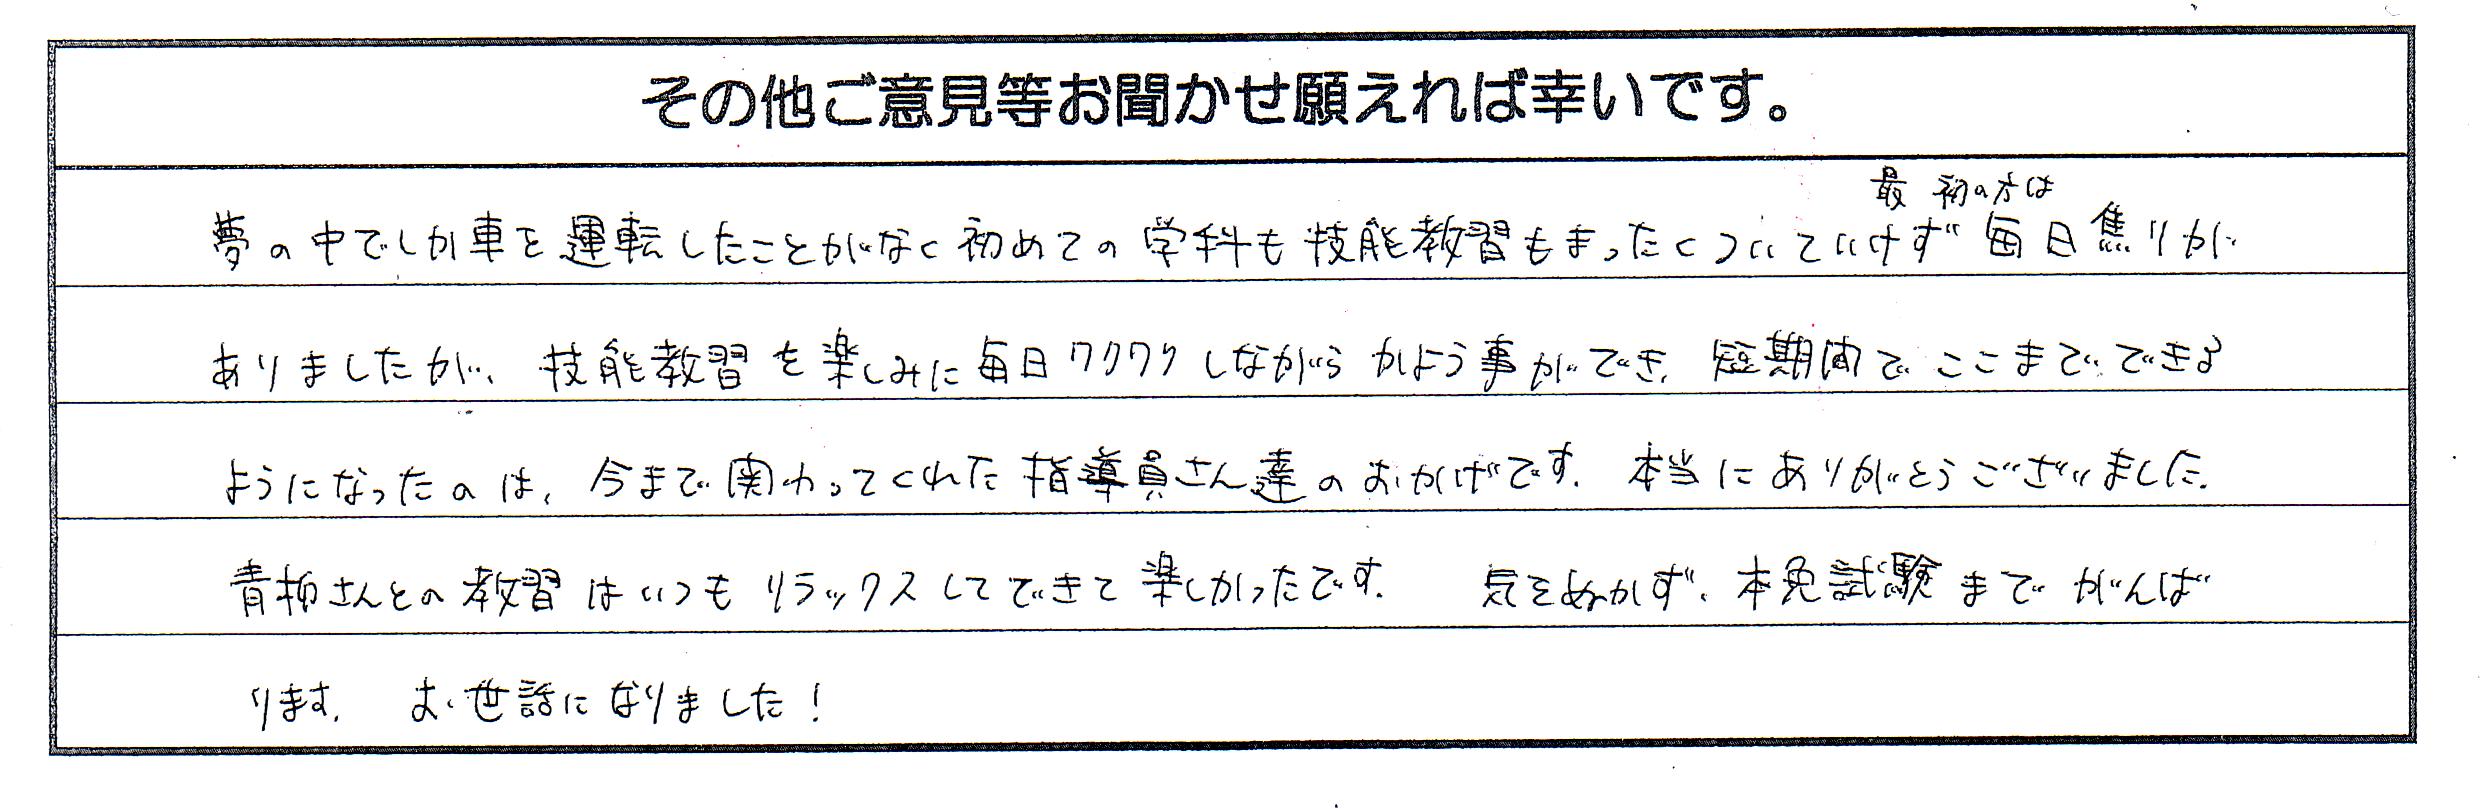 その他ご意見等お聞かせ願えれば幸いです。
最初の方は
夢の中でしか車を運転したことがなく初めての学科も技能教習もまったくついていけず毎日焦りが
ありましたが、技能教習を楽しみに毎日ワクワクしながらかよう事ができ、短期間でここまでできる
ようになったのは、今まで関わってくれた指導員さん達のおかげです。本当にありがとうございました。
青柳さんとの教習はいつもリラックスしてできて楽しかったです。 気をぬかず、本免試験までがんば
ります。 お世話になりました!